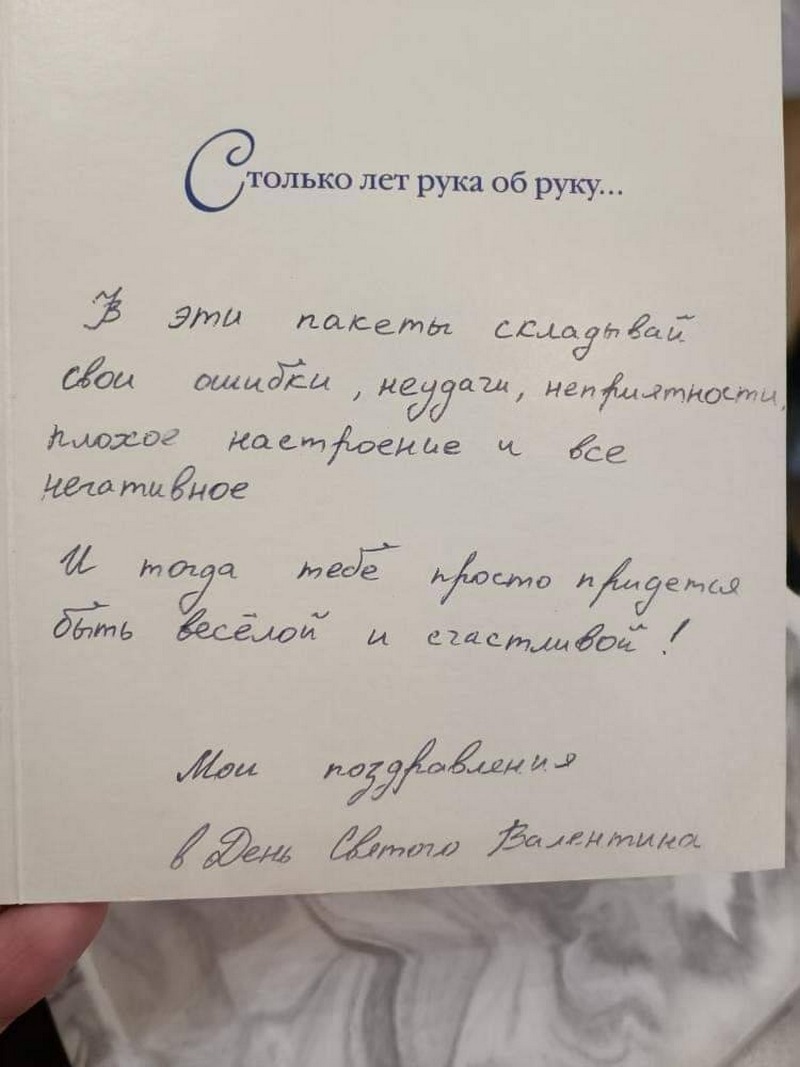 Столько лет рука об руку...
В эти пакеты складывай
свои ошибки, неудачи, неприятности,
плохое настроение и все
негативное
И тогда тебе просто придется
быть весёлой и счастливой!
Мои поздравления
в День Святого Валентина